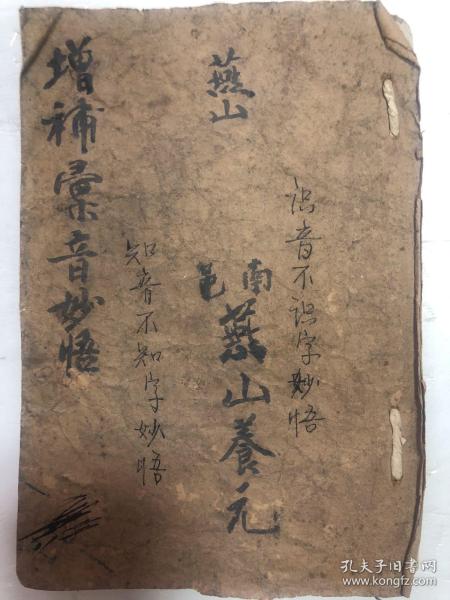 識音不識字妙悟
燕山
南邑
燕山養元
知音不知字妙悟
增補彙音妙悟
孔夫子旧书网
www.kongfz.com